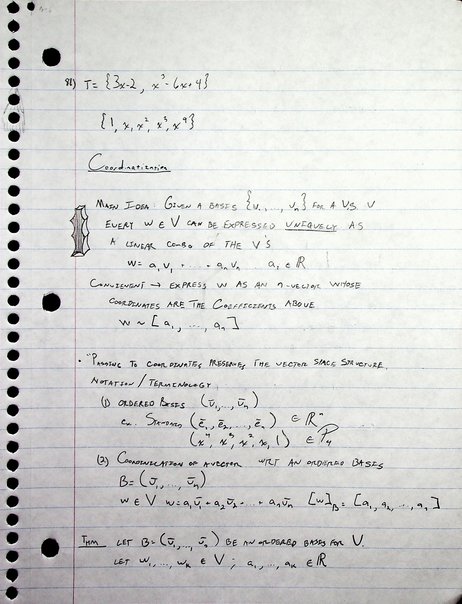 81) T = {3x-2, x³-6x+4}
{1, x, x², x³, x⁴}
MAIN IDEA: GIVEN A BASES {v₁, ..., vₙ} FOR A V.S. V
EVERY W ∈ V CAN BE EXPRESSED UNIQUELY AS
A LINEAR COMBO OF THE V'S
W = a₁v₁ + ... + aₙvₙ aᵢ ∈ ℝ
CONVENIENT → EXPRESS W AS AN n-VECTOR WHOSE
COORDINATES ARE THE COEFFICIENTS ABOVE
W ~ [a₁, ..., aₙ]
• "PASSING TO COORDINATES PRESERVES THE VECTOR SPACE STRUCTURE.
NOTATION / TERMINOLOGY
(1) ORDERED BASES (v̄₁, ..., v̄ₙ)
ex. STANDARD (ē₁, ē₂, ..., ēₙ) ∈ ℝⁿ
(x⁴, x³, x², x, 1) ∈ P₄
(2) OF A VECTOR WRT AN ORDERED BASES
B = (v̄₁, ..., v̄ₙ)
W ∈ V W = a₁v̄₁ + a₂v̄₂ + ... + aₙv̄ₙ [W]_B = [a₁, a₂, ..., aₙ]
THM LET B = (v̄₁, ..., v̄ₙ) BE AN ORDERED BASES FOR V.
LET W₁, ..., Wₖ ∈ V ; a₁, ..., aₖ ∈ ℝ